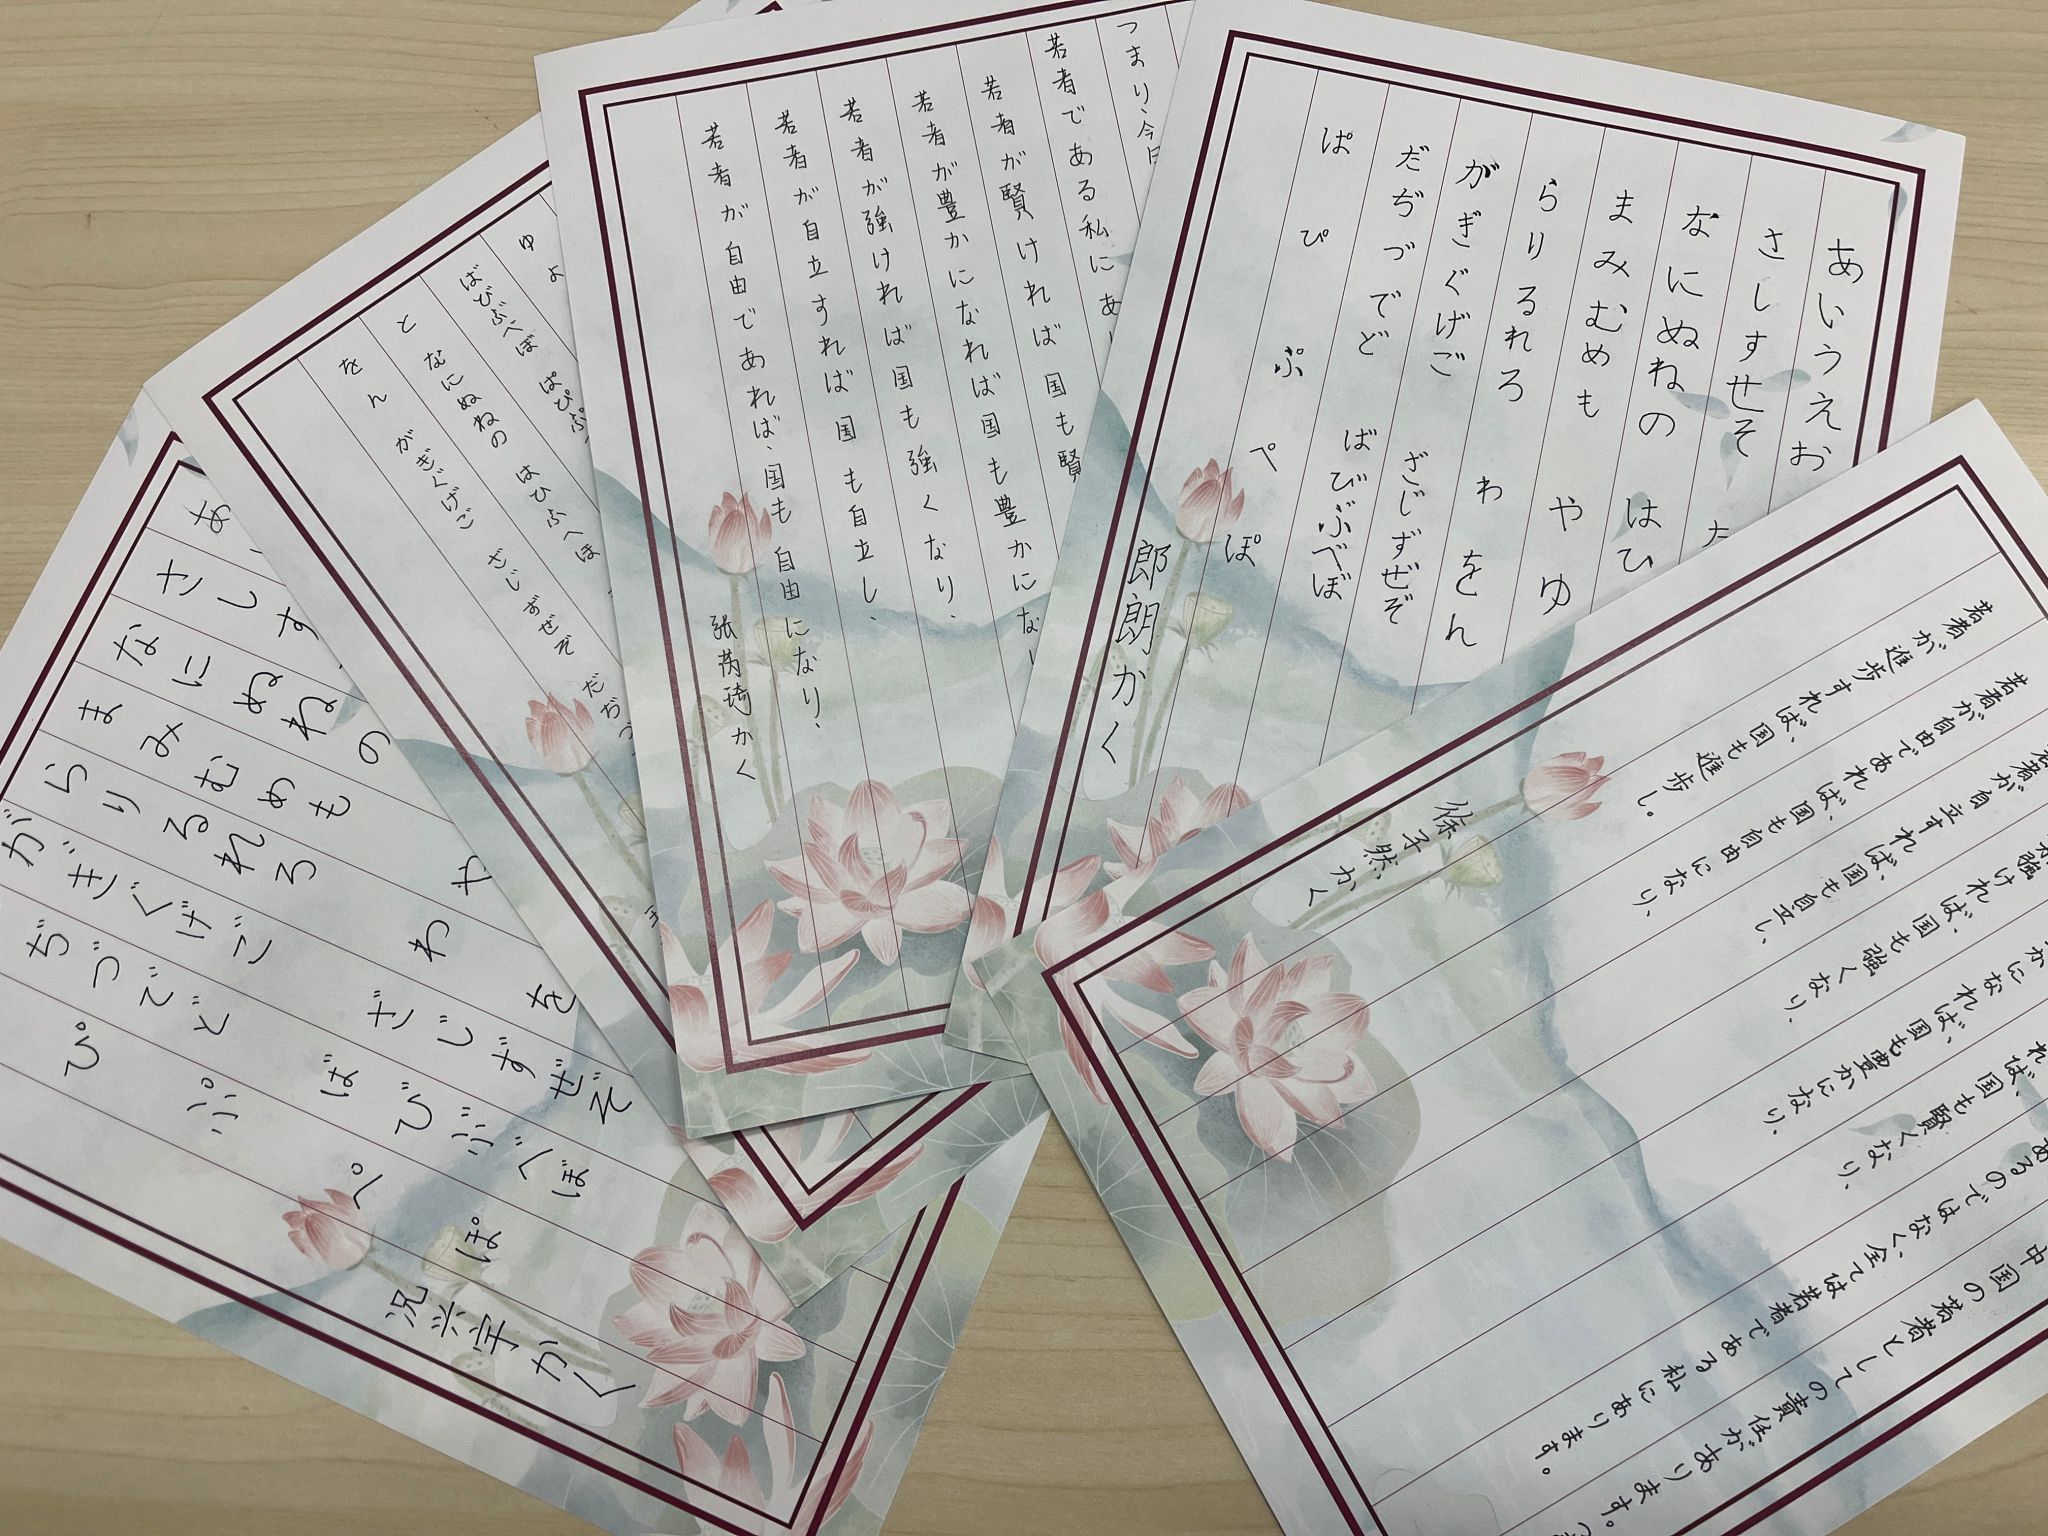 あいうえお
さしすせそ
なにぬねの はひ
まみむめも や ゆ
らりるれろ わ をん
がぎぐげご ざじずぜぞ
だぢづでど ばびぶべぼ
ぱ ぴ ぷ ぺ ぽ
郎朗かく
つまり、今日
若者である私にあ
若者が賢ければ国も賢
若者が豊かになれば国も豊かにな
若者が強ければ国も強くなり、
若者が自立すれば国も自立し、
若者が自由であれば、国も自由になり、
張芮琦かく
ゆ よ
ばびぶべぼ ぱぴぷ
と なにぬねの はひふへほ
をん がぎぐげご ざじずぜぞ だぢ
あ
さしす
なにぬねの
まみむめも や
らりるれろ わ を
がぎぐげご ざじずぜぞ
ぢづでど ばびぶべぼ
ぴ ぷ ぺ ぽ
況*宇かく
中国の若者としての責任があります。
あるのではなく、全ては若者である私にあります。
れば、国も賢くなり、
かになれば、国も豊かになり、
が強ければ、国も強くなり、
若者が自立すれば、国も自立し、
若者が自由であれば、国も自由になり、
若者が進歩すれば、国も進歩し。
徐子然かく